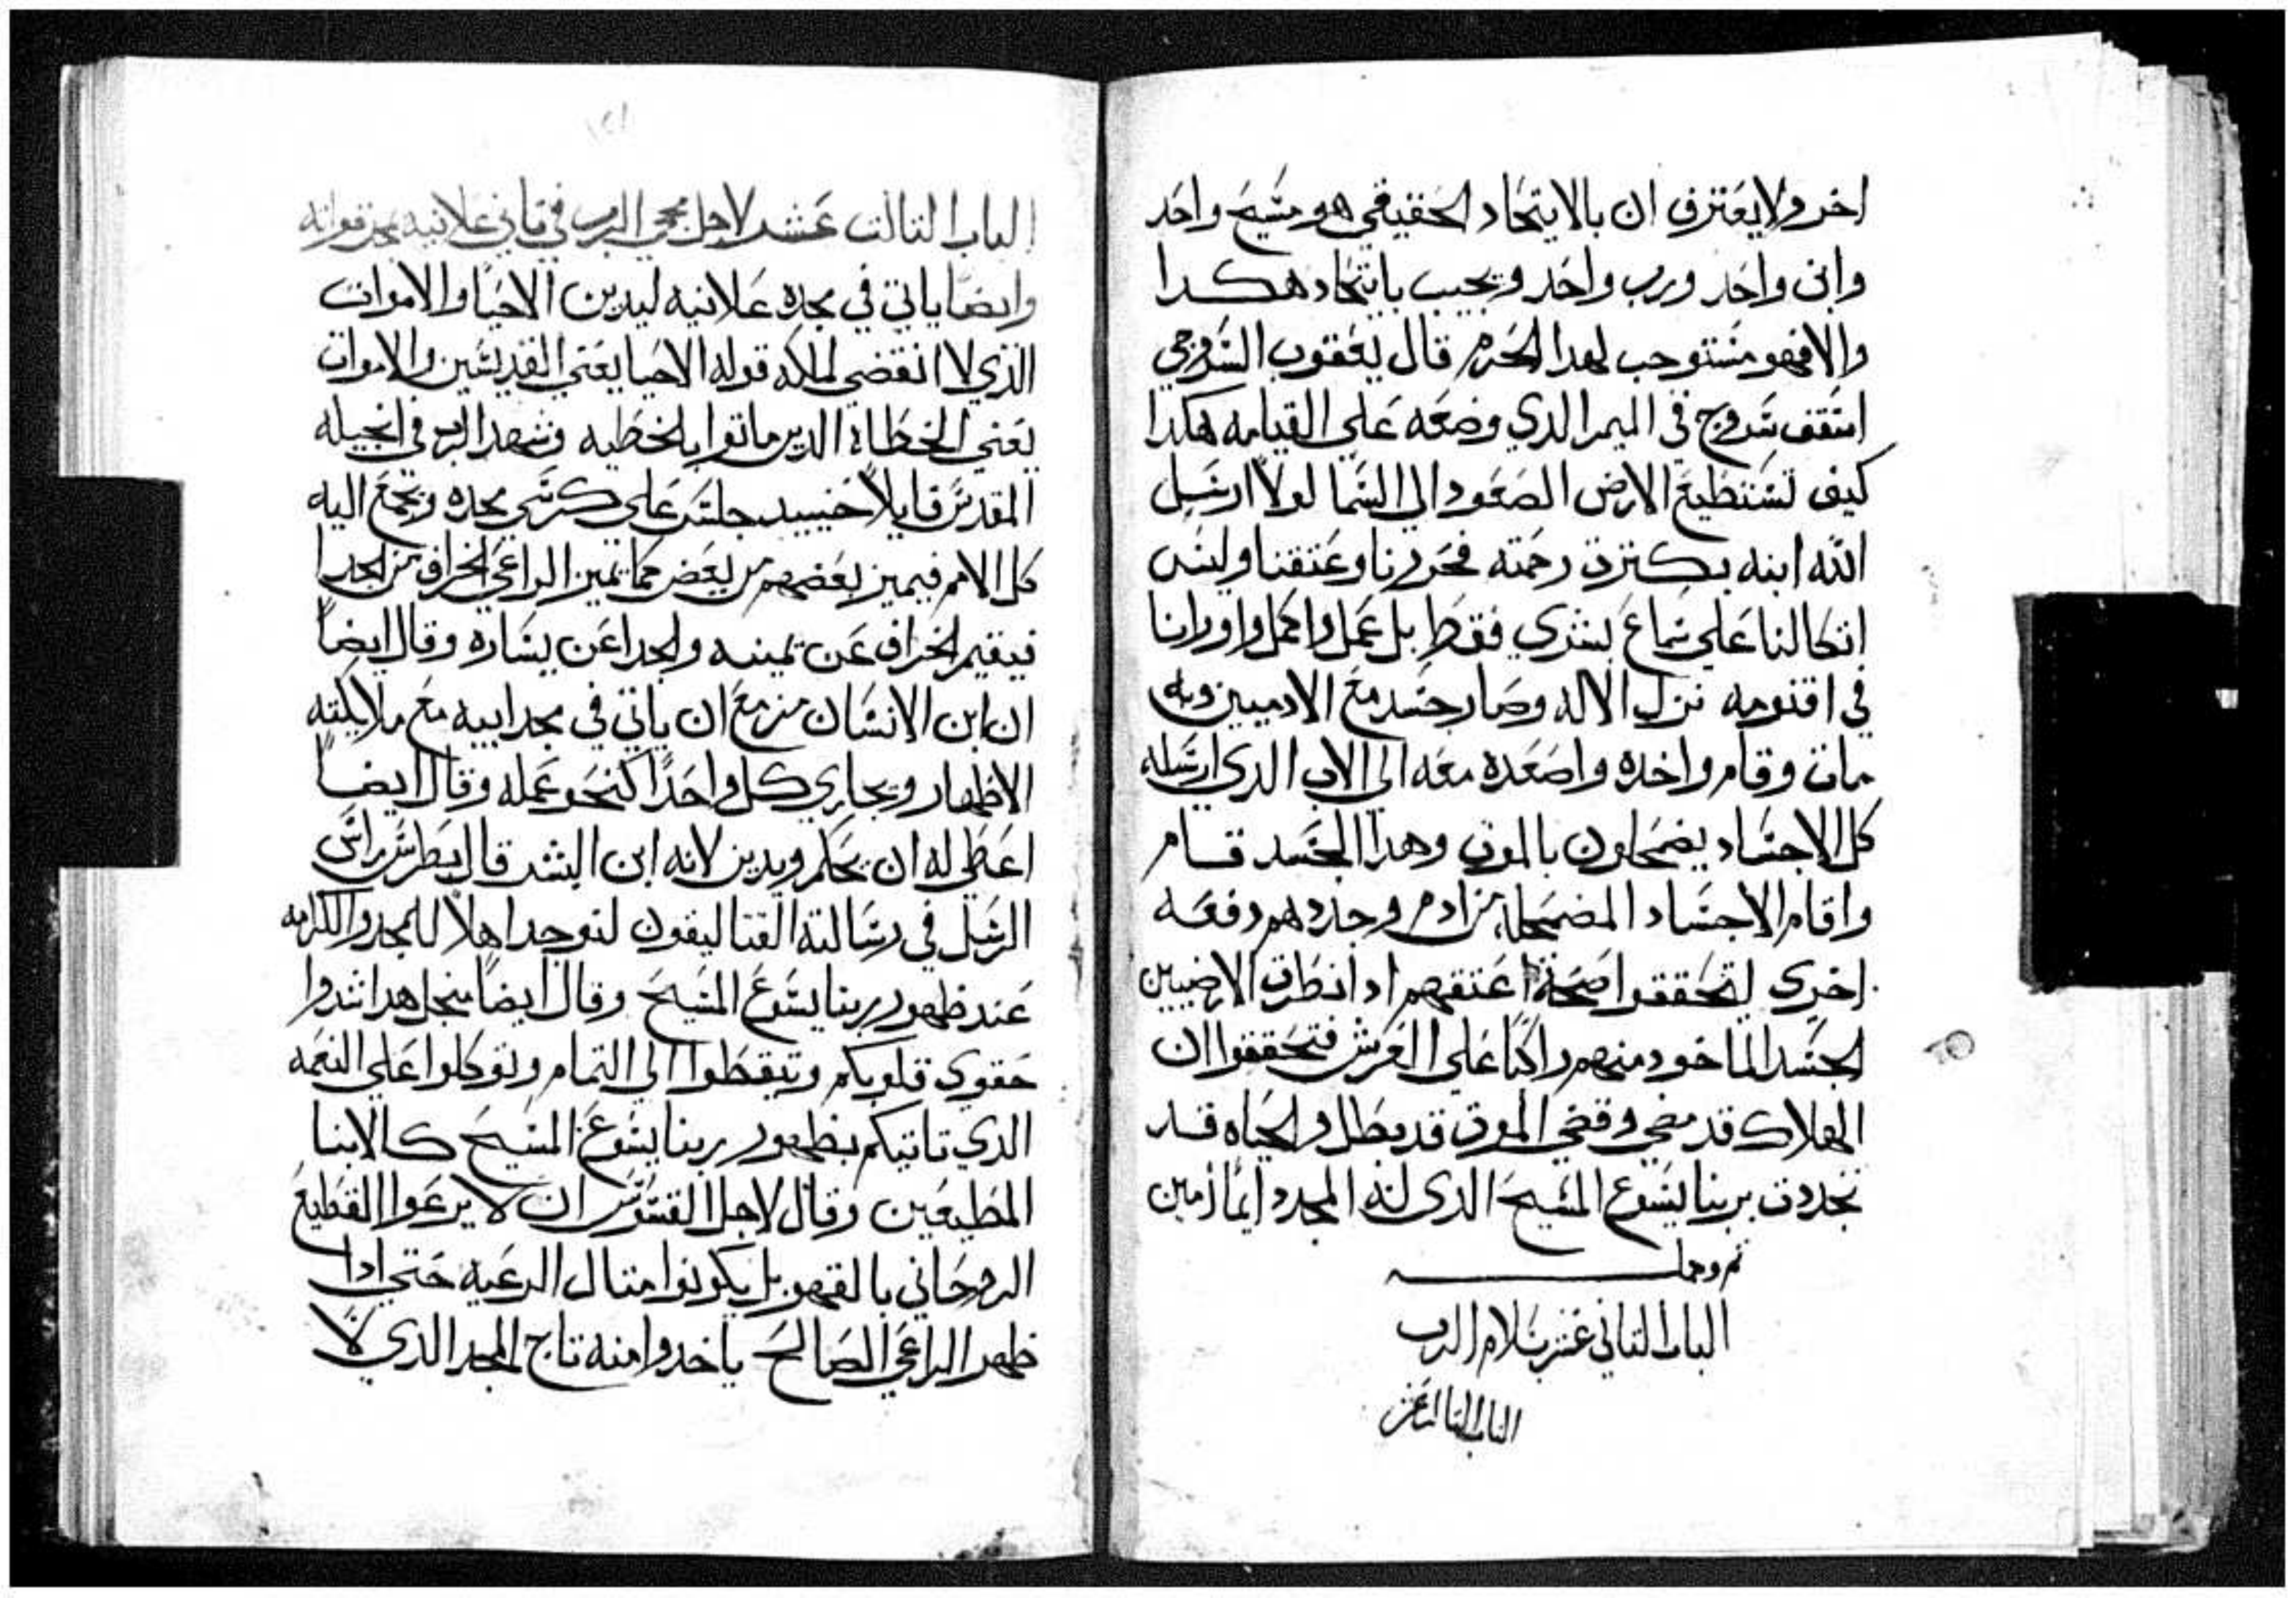 اخر ولا يعترف ان بالايتحاد الحقيقي هو مسيح واحد
وابن واحد ورب واحد ويجيب بايتحاد هكدا
والا فهو مستوجب لهدا الحرم قال يعقوب السروجي
اسقف سروج في الميمر الدي وضعه علي القيامه هكدا
كيف تستطيع الارض الصعود الي السما لولا ارسل
الله ابنه بكترت رحمته فحررنا وعتقنا وليس
اتكالنا علي سماع بشري فقط بل عمل واكمل واورانا
في اقنومه نزل الاله وصار جسد مع الادميين وبه
مات وقام واخده واصعده معه الي الاب الدي ارسله
كل الاجساد يضمحلون بالموت وهدا الجسد قام
واقام الاجساد المضمحله من ادم وجددهم دفعه
اخري ليتحققوا صحة اعتقهم ادا نطرت الارضيين
الجسد الماخود منهم راكبا علي العرش فتحققوا ان
الهلاك قد مضي وقضي الموت قد بطل والحياه قد
تجددت بربنا يسوع المسيح الدي له المجد دايما امين
تم وكمل
الباب التاني عشر بسلام الرب
الباب التالت عشر
١٢١
الباب التالت عشر لاجل مجي الرب في تاني علانيه بمجد قوله
وايضا ياتي في مجده علانيه ليدين الاحيا والاموات
الذي لا انقضي لملكه قوله الاحيا يعني القديسين والاموات
يعني الخطاة الدين ماتوا بالخطيه وشهد الرب في انجيله
المقدس قايلا حينيد يجلس علي كرسي مجده ويجمع اليه
كل الامم فيميز بعضهم من بعض كما يميز الراعي الخراف من الجدا
فيقيم الخراف عن يمينه والجدا عن يساره وقال ايضا
ان ابن الانسان مزمع ان ياتي في مجد ابيه مع ملايكته
الاظهار ويجازي كل واحدا كنحو عمله وقال ايضا
اعطي له ان يحكم ويدين لانه ابن البشر قال بطرس راس
الرسل في رسالته القتاليقون لنوجد اهلا للمجد والكرامه
عند ظهور ربنا يسوع المسيح وقال ايضا منجل هدا شدوا
حقوي قلوبكم وتيقظوا الي التمام وتوكلوا علي النعمه
الدي تاتيكم بظهور ربنا يسوع المسيح كالابنا
المطيعين وقال لاجل القسوس ان لا يرعوا القطيع
الروحاني بالقهر بل يكونوا متال الرعيه حتي ادا
ظهر الراعي الصالح ياخدوا منه تاج المجد الدي لا